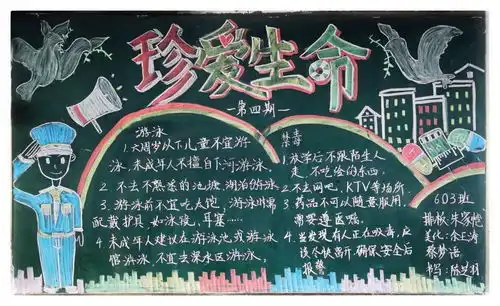 珍爱生命
—第四期—
游泳
1.六周岁以下儿童不宜游
泳，未成年人不擅自下河游泳。
2.不去不熟悉的池塘、湖泊游泳
3.游泳前不宜吃太饱，游泳时需
配戴护具，如泳镜，耳塞……
4.未成年人建议在游泳池或游泳
馆游泳，不宜去深水区游泳。
禁毒
1.放学后不跟陌生人
走，不吃给的东西。
2.不去网吧、KTV等场所
3.药品不可以随意服用，
需要遵医嘱。
4.当发现有人正在吸毒，应
该尽快离开，确保安全后
报警
603班
排板：朱家
美化：余正涛
蔡梦语
书写：陈昱羽